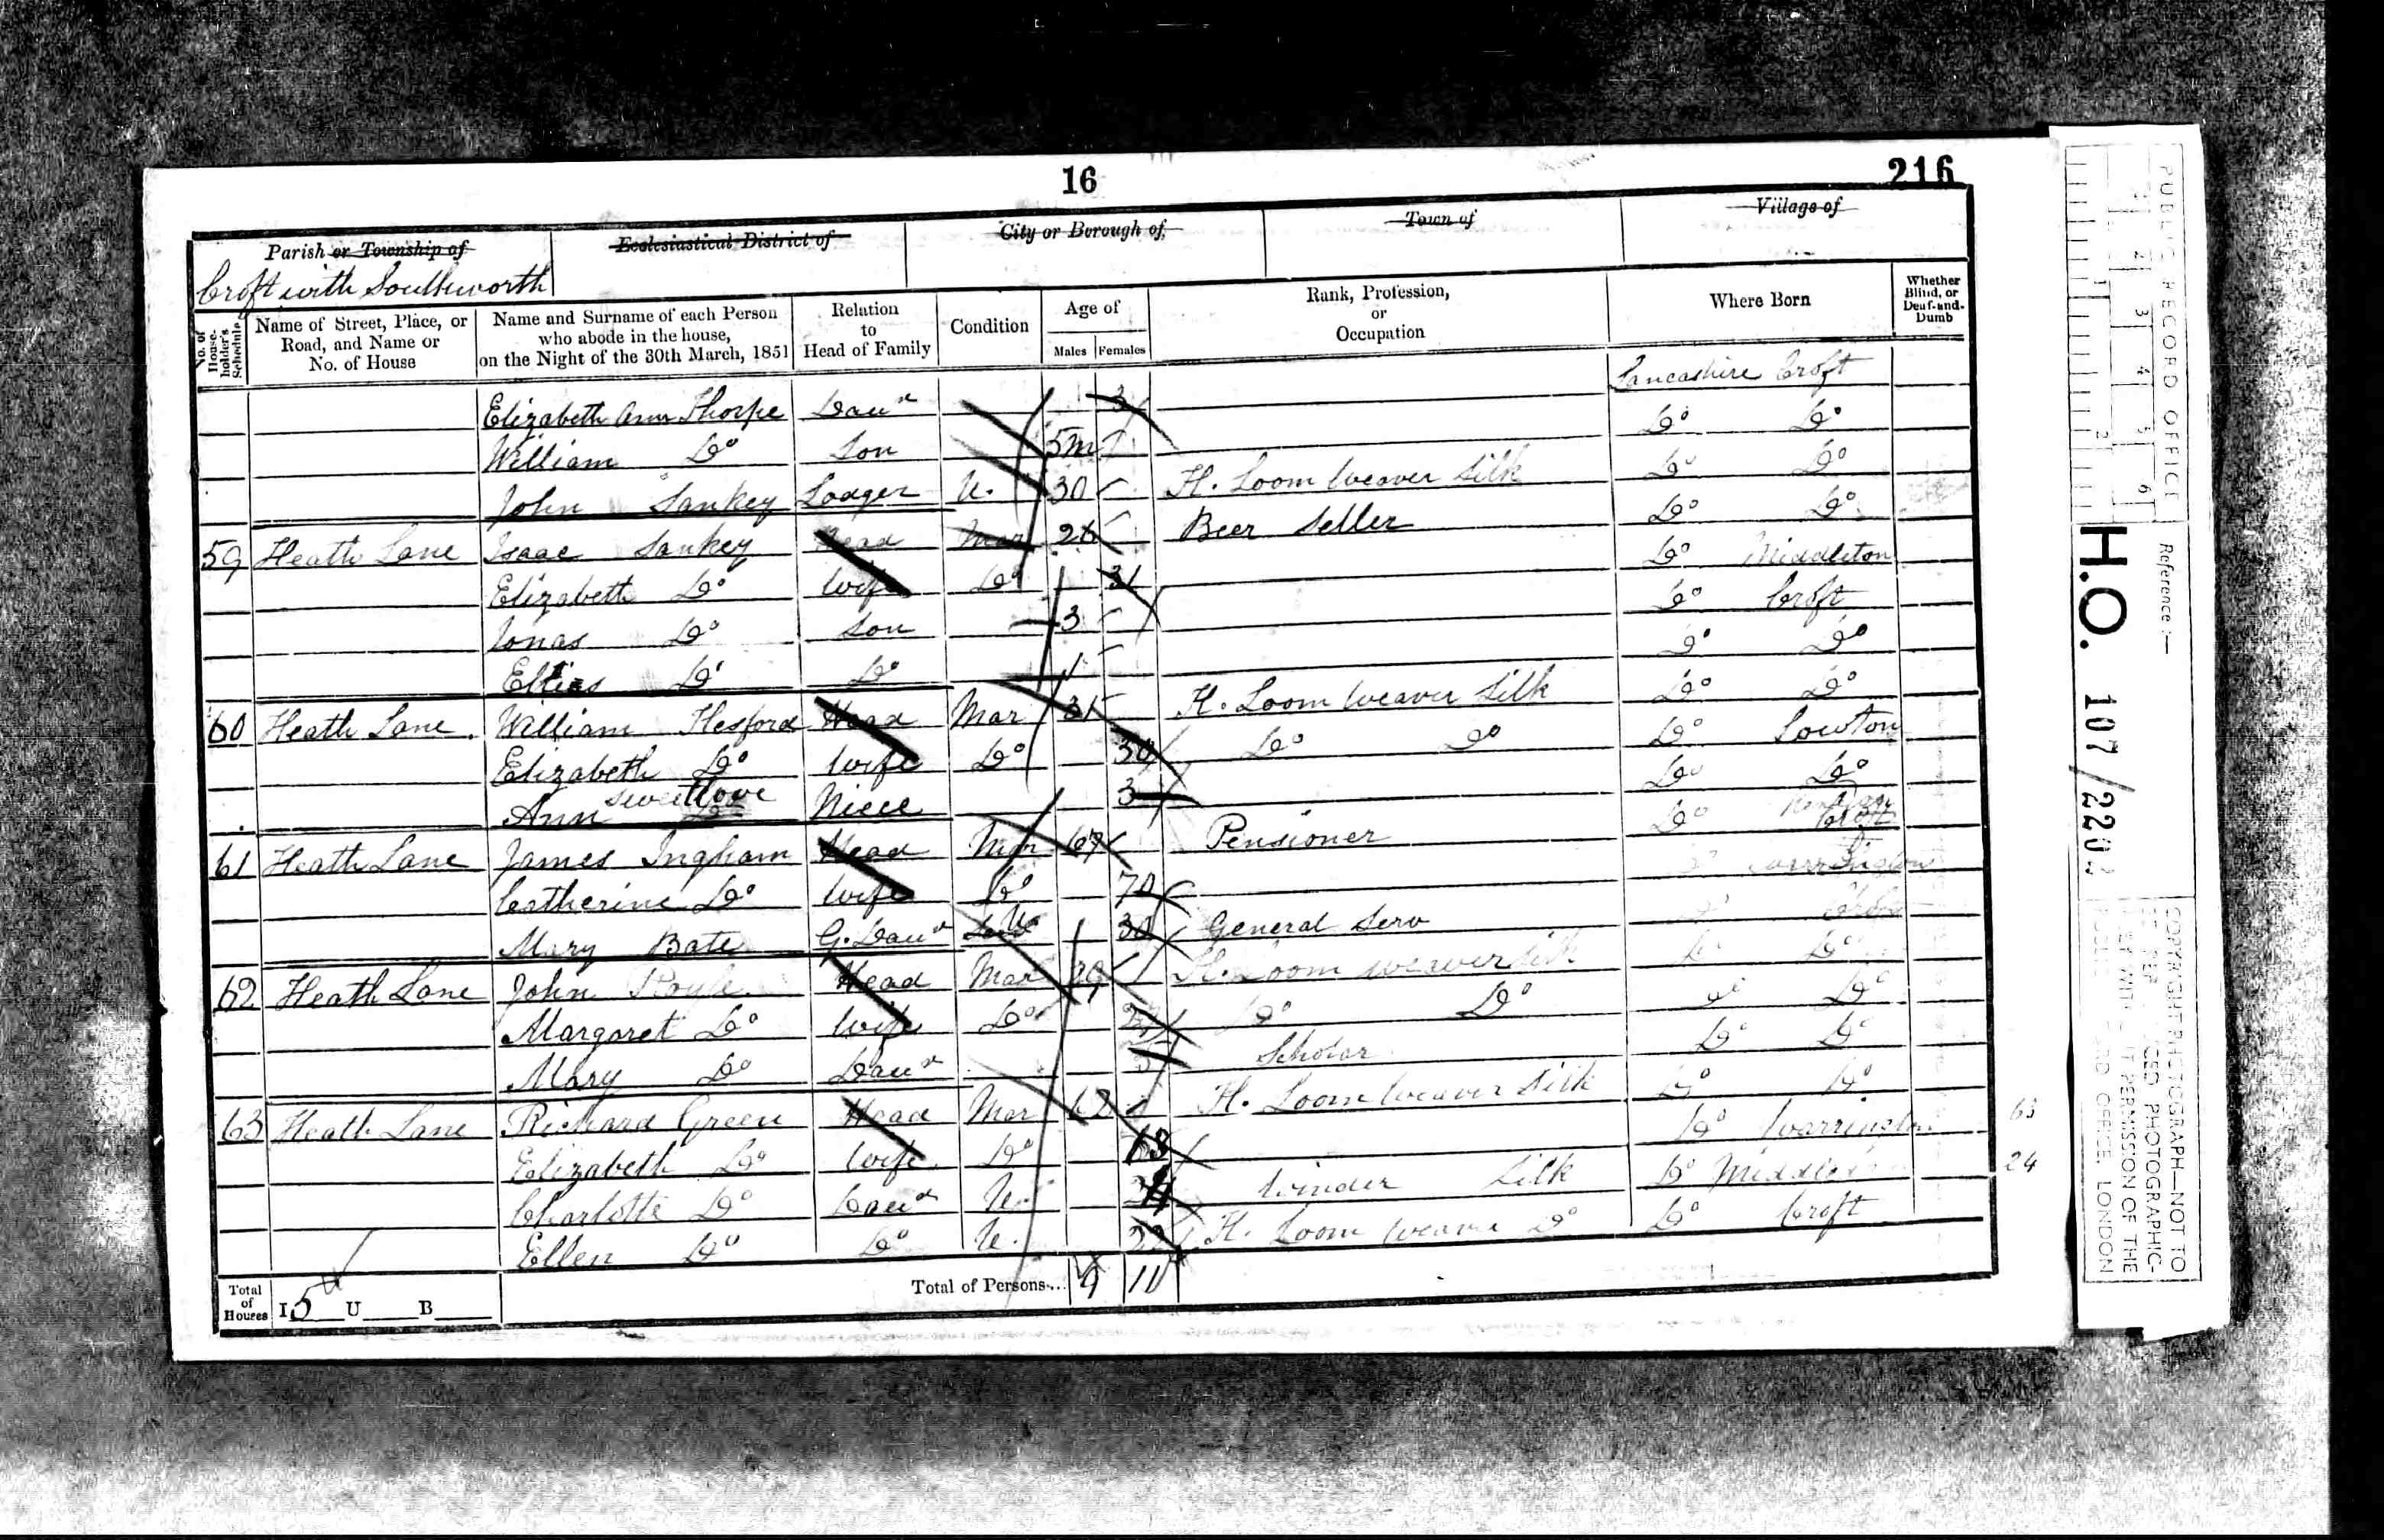 16
216
Parish or Township of
Ecclesiastical District of
City or Borough of
Town of
Village of
Croft with Southworth
No. of House-holder's Schedule
Name of Street, Place, or Road, and Name or No. of House
Name and Surname of each Person who abode in the house, on the Night of the 30th March, 1851
Relation to Head of Family
Condition
Age of
Males
Females
Rank, Profession, or Occupation
Where Born
Whether Blind, or Deaf-and-Dumb
Elizabeth Ann Thorpe Daur 3 Lancashire Croft
William Do Son 5m Do Do
John Sankey Lodger U. 30 H. Loom Weaver Silk Do Do
59 Heath Lane Isaac Sankey Head Mar 26 Beer Seller Do Do
Elizabeth Do Wife Do 31 Do Middleton
Jonas Do Son 3 Do Croft
Do Do 1 Do Do
60 Heath Lane William Hesford Head Mar 31 H. Loom Weaver Silk Do Do
Elizabeth Do Wife Do 30 Do Do Do Lowton
Ann Sweetlove Niece 3 Do Do
61 Heath Lane James Ingham Head Mar 67 Pensioner Do Croft
Catherine Do Wife Do 70
Mary Bate G. Daur 30 General Serv
62 Heath Lane John Head Mar 29 H. Loom Weaver Silk Do Do
Margaret Do Wife Do Do Do Do Do
Mary Do Daur 5 Scholar Do Do
63 Heath Lane Richard Green Head Mar 62 H. Loom Weaver Silk Do Do
Elizabeth Do Wife Do 63 Do Warrington 63
Charlotte Do Daur U. 24 Winder Silk Do Middleton 24
Ellen Do Do U. 22 H. Loom Weaver Do Do Croft
Total of Houses I 5 U B
Total of Persons... 9 11
PUBLIC RECORD OFFICE
Reference :—
1 2 3 4 5 6
H.O. 107/2202
COPYRIGHT PHOTOGRAPH—NOT TO
PHOTOGRAPHIC-
PERMISSION OF THE
OFFICE, LONDON